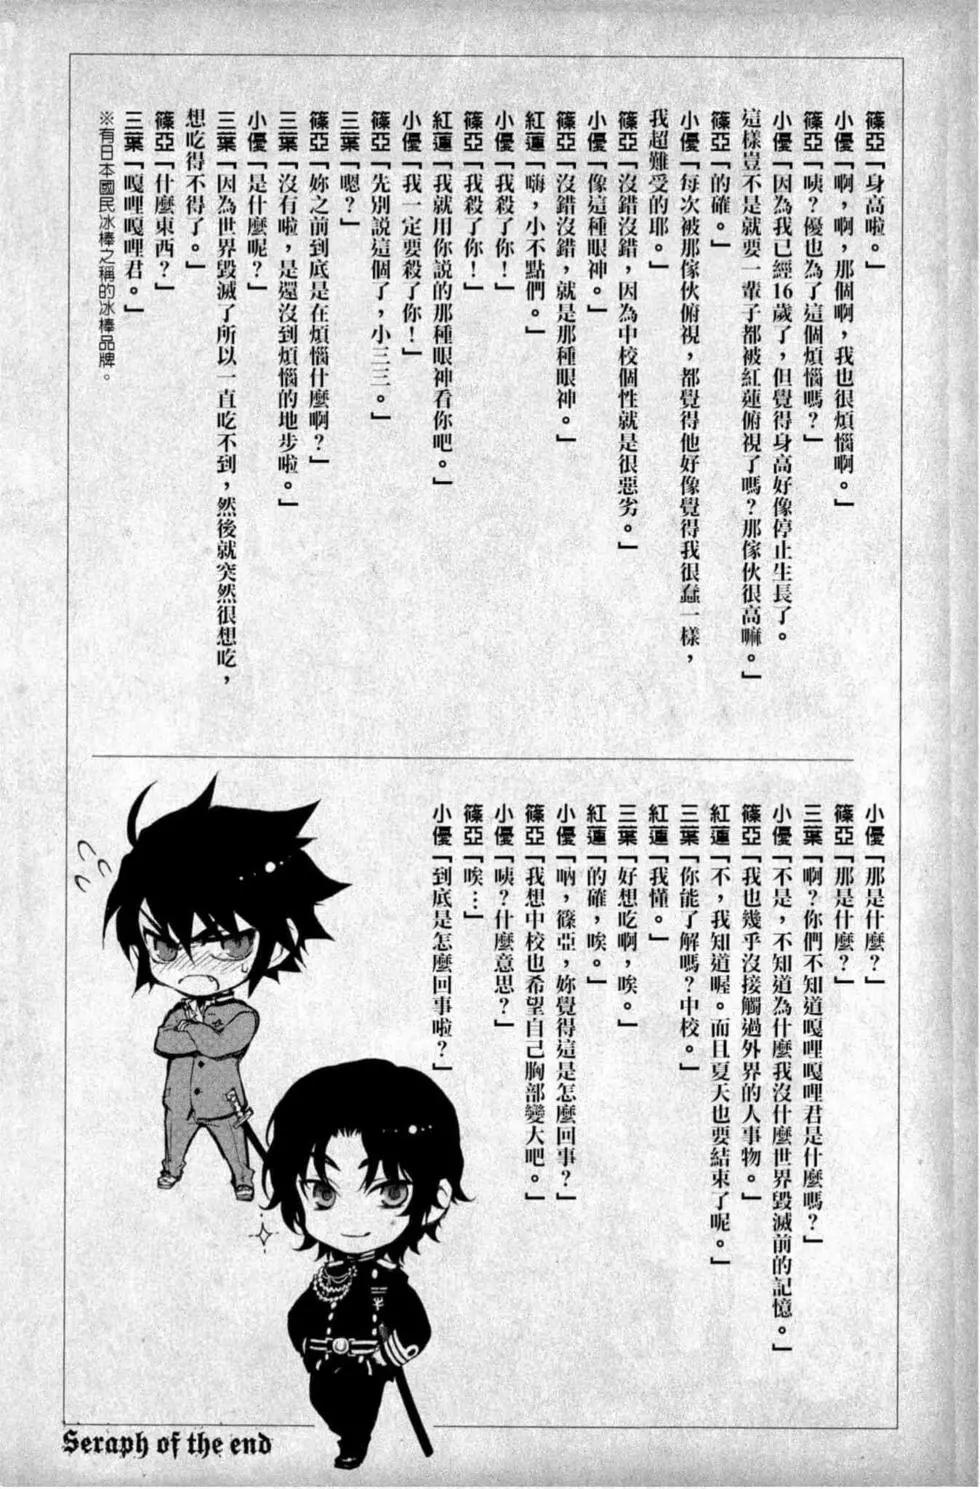 篠亞「身高啦。」
小優「啊，啊，那個啊，我也很煩惱啊。」
篠亞「咦？優也為了這個煩惱嗎？」
小優「因為我已經16歲了，但覺得身高好像停止生長了。
這樣豈不是就要一輩子都被紅蓮俯視了嗎？那傢伙很高嘛。」
篠亞「的確。」
小優「每次被那傢伙俯視，都覺得他好像覺得我很蠢一樣，
我超難受的耶。」
篠亞「沒錯沒錯，因為中校個性就是很惡劣。」
小優「像這種眼神。」
篠亞「沒錯沒錯，就是那種眼神。」
紅蓮「嗨，小不點們。」
小優「我殺了你！」
篠亞「我殺了你！」
紅蓮「我就用你說的那種眼神看你吧。」
小優「我一定要殺了你！」
篠亞「先別說這個了，小三三。」
三葉「嗯？」
篠亞「妳之前到底是在煩惱什麼啊？」
三葉「沒有啦，是還沒到煩惱的地步啦。」
小優「是什麼呢？」
三葉「因為世界毀滅了所以一直吃不到，然後就突然很想吃，
想吃得不得了。」
篠亞「什麼東西？」
三葉「嘎哩嘎哩君。」
※有日本國民冰棒之稱的冰棒品牌。
小優「那是什麼？」
篠亞「那是什麼？」
三葉「啊？你們不知道嘎哩嘎哩君是什麼嗎？」
小優「不是，不知道為什麼我沒什麼世界毀滅前的記憶。」
篠亞「我也幾乎沒接觸過外界的人事物。」
紅蓮「不，我知道喔。而且夏天也要結束了呢。」
三葉「你能了解嗎？中校。」
紅蓮「我懂。」
三葉「好想吃啊，唉。」
紅蓮「的確，唉。」
小優「吶，篠亞，妳覺得這是怎麼回事？」
篠亞「我想中校也希望自己胸部變大吧。」
小優「咦？什麼意思？」
篠亞「唉…」
小優「到底是怎麼回事啦？」
Seraph of the end